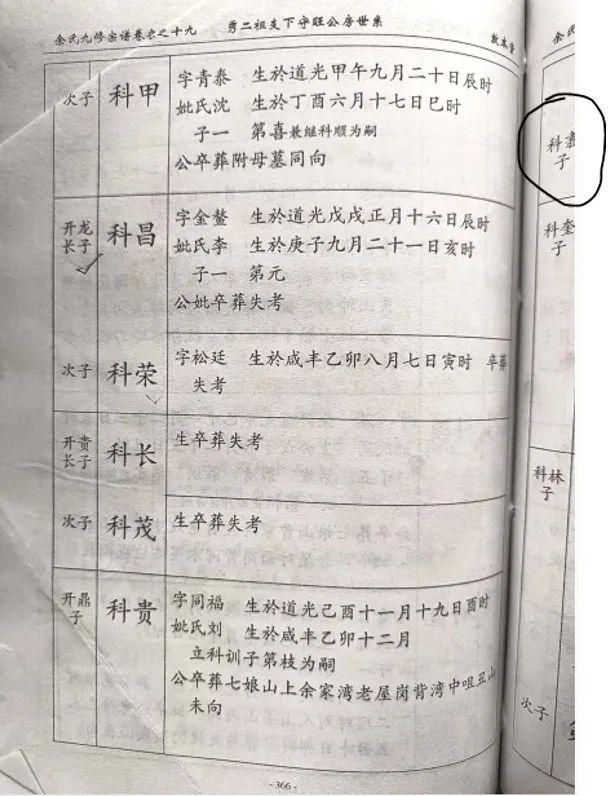 余氏九修宗谱卷之十九　秀二祖支下守旺公房世系　敦本堂
次子　科甲
字青泰　生於道光甲午九月二十日辰时
妣氏沈　生於丁酉六月十七日巳时
子一　第喜兼继科顺为嗣
公卒葬附母墓同向
开龙长子　科昌
字金鳌　生於道光戊戌正月十六日辰时
妣氏李　生於庚子九月二十一日亥时
子一　第元
公妣卒葬失考
次子　科荣
字松廷　生於咸丰乙卯八月七日寅时　卒葬
失考
开贵长子　科长
生卒葬失考
次子　科茂
生卒葬失考
开鼎子　科贵
字同福　生於道光己酉十一月十九日酉时
妣氏刘　生於咸丰乙卯十二月
立科训子第枝为嗣
公卒葬七娘山上余家湾老屋岗背湾中咀丑山
未向
-366-
余氏
科
子
科奎
子
科林
子
次子